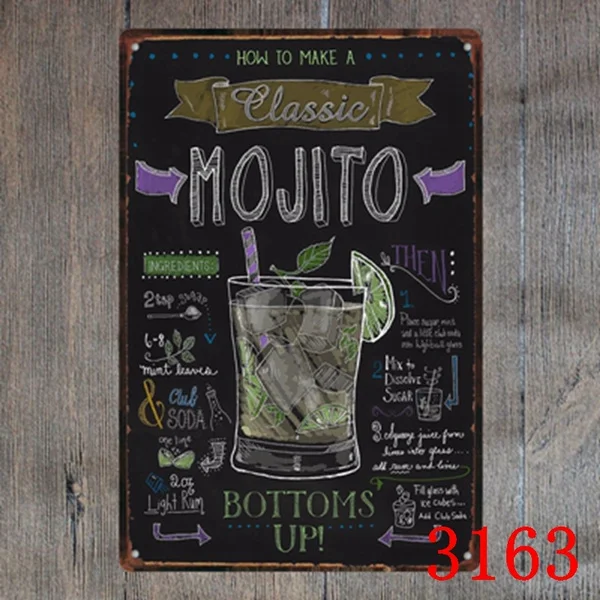 HOW TO MAKE A
Classic
MOJITO
INGREDIENTS:
2 tsp sugar
6-8
mint leaves
& Club
SODA
one lime
2 oz
Light Rum
THEN
1
Place sugar, mint
and a little club soda
into highball glass
2 Mix to
Dissolve
SUGAR
3 Squeeze juice from
lime into glass...
add rum and limes
Fill glass with
ice cubes...
Add Club Soda
BOTTOMS
UP!
3163